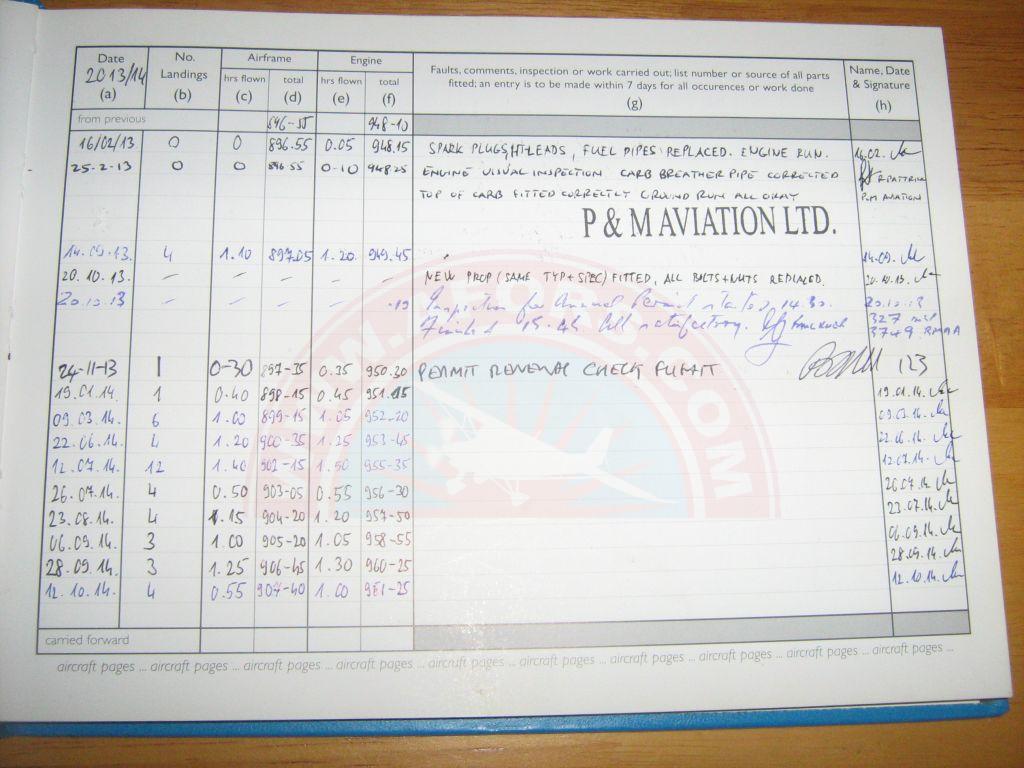 Date No. Airframe Engine Faults, comments, inspection or work carried out; list number or source of all parts Name, Date
2013/14 Landings hrs flown total hrs flown total fitted; an entry is to be made within 7 days for all occurences or work done & Signature
(a) (b) (c) (d) (e) (f) (g) (h)
from previous 896-55 948-10
16/02/13 0 0 896.55 0.05 948.15 SPARK PLUGS, HT-LEADS, FUEL PIPES REPLACED. ENGINE RUN. 16.02.
25-2-13 0 0 896 55 0-10 948 25 ENGINE VISUAL INSPECTION CARB BREATHER PIPE CORRECTED
TOP OF CARB FITTED CORRECTLY GROUND RUN ALL OKAY P&M AVIATION
P & M AVIATION LTD.
14.09.13. 4 1.10 897.05 1.20 949.45 14.09.
20.10.13. – – – – – NEW PROP (SAME TYP+SPEC) FITTED, ALL BOLTS+NUTS REPLACED. 20.10.13.
20.10.13 – – – – -10 Inspection for Annual Permit started 14.30. 20.10.13
Finished 15.45 All satisfactory. 327
24-11-13 1 0-30 897-35 0.35 950.20 PERMIT RENEWAL CHECK FLIGHT 123
19.01.14. 1 0.40 898-15 0.45 951.15 19.01.14.
09.03.14. 6 1.00 899-15 1.05 952-20 09.03.14.
22.06.14. 4 1.20 900-35 1.25 953-45 22.06.14.
12.07.14. 12 1.40 902-15 1.50 955-35 12.07.14.
26.07.14. 4 0.50 903-05 0.55 956-30 26.07.14.
23.08.14. 4 1.15 904-20 1.20 957-50 23.07.14.
06.09.14. 3 1.00 905-20 1.05 958-55 06.09.14.
28.09.14. 3 1.25 906-45 1.30 960-25 28.09.14.
12.10.14. 4 0.55 907-40 1.00 961-25 12.10.14.
carried forward
aircraft pages ... aircraft pages ... aircraft pages ... aircraft pages ... aircraft pages ... aircraft pages ... aircraft pages ... aircraft pages ... aircraft pages ... aircraft pages ...